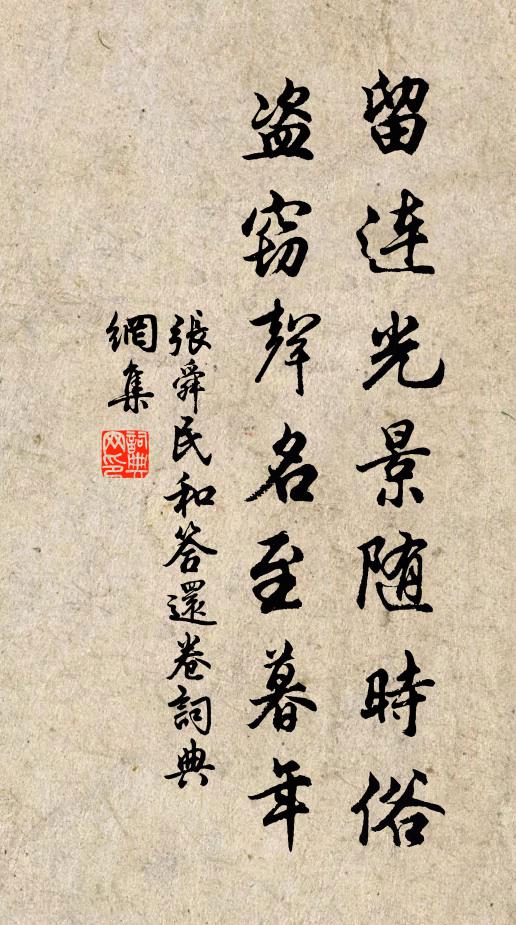 留连光景随時俗
盗窃聲名至暮年
張舜民和答還卷詞典
網集
詞典
网印